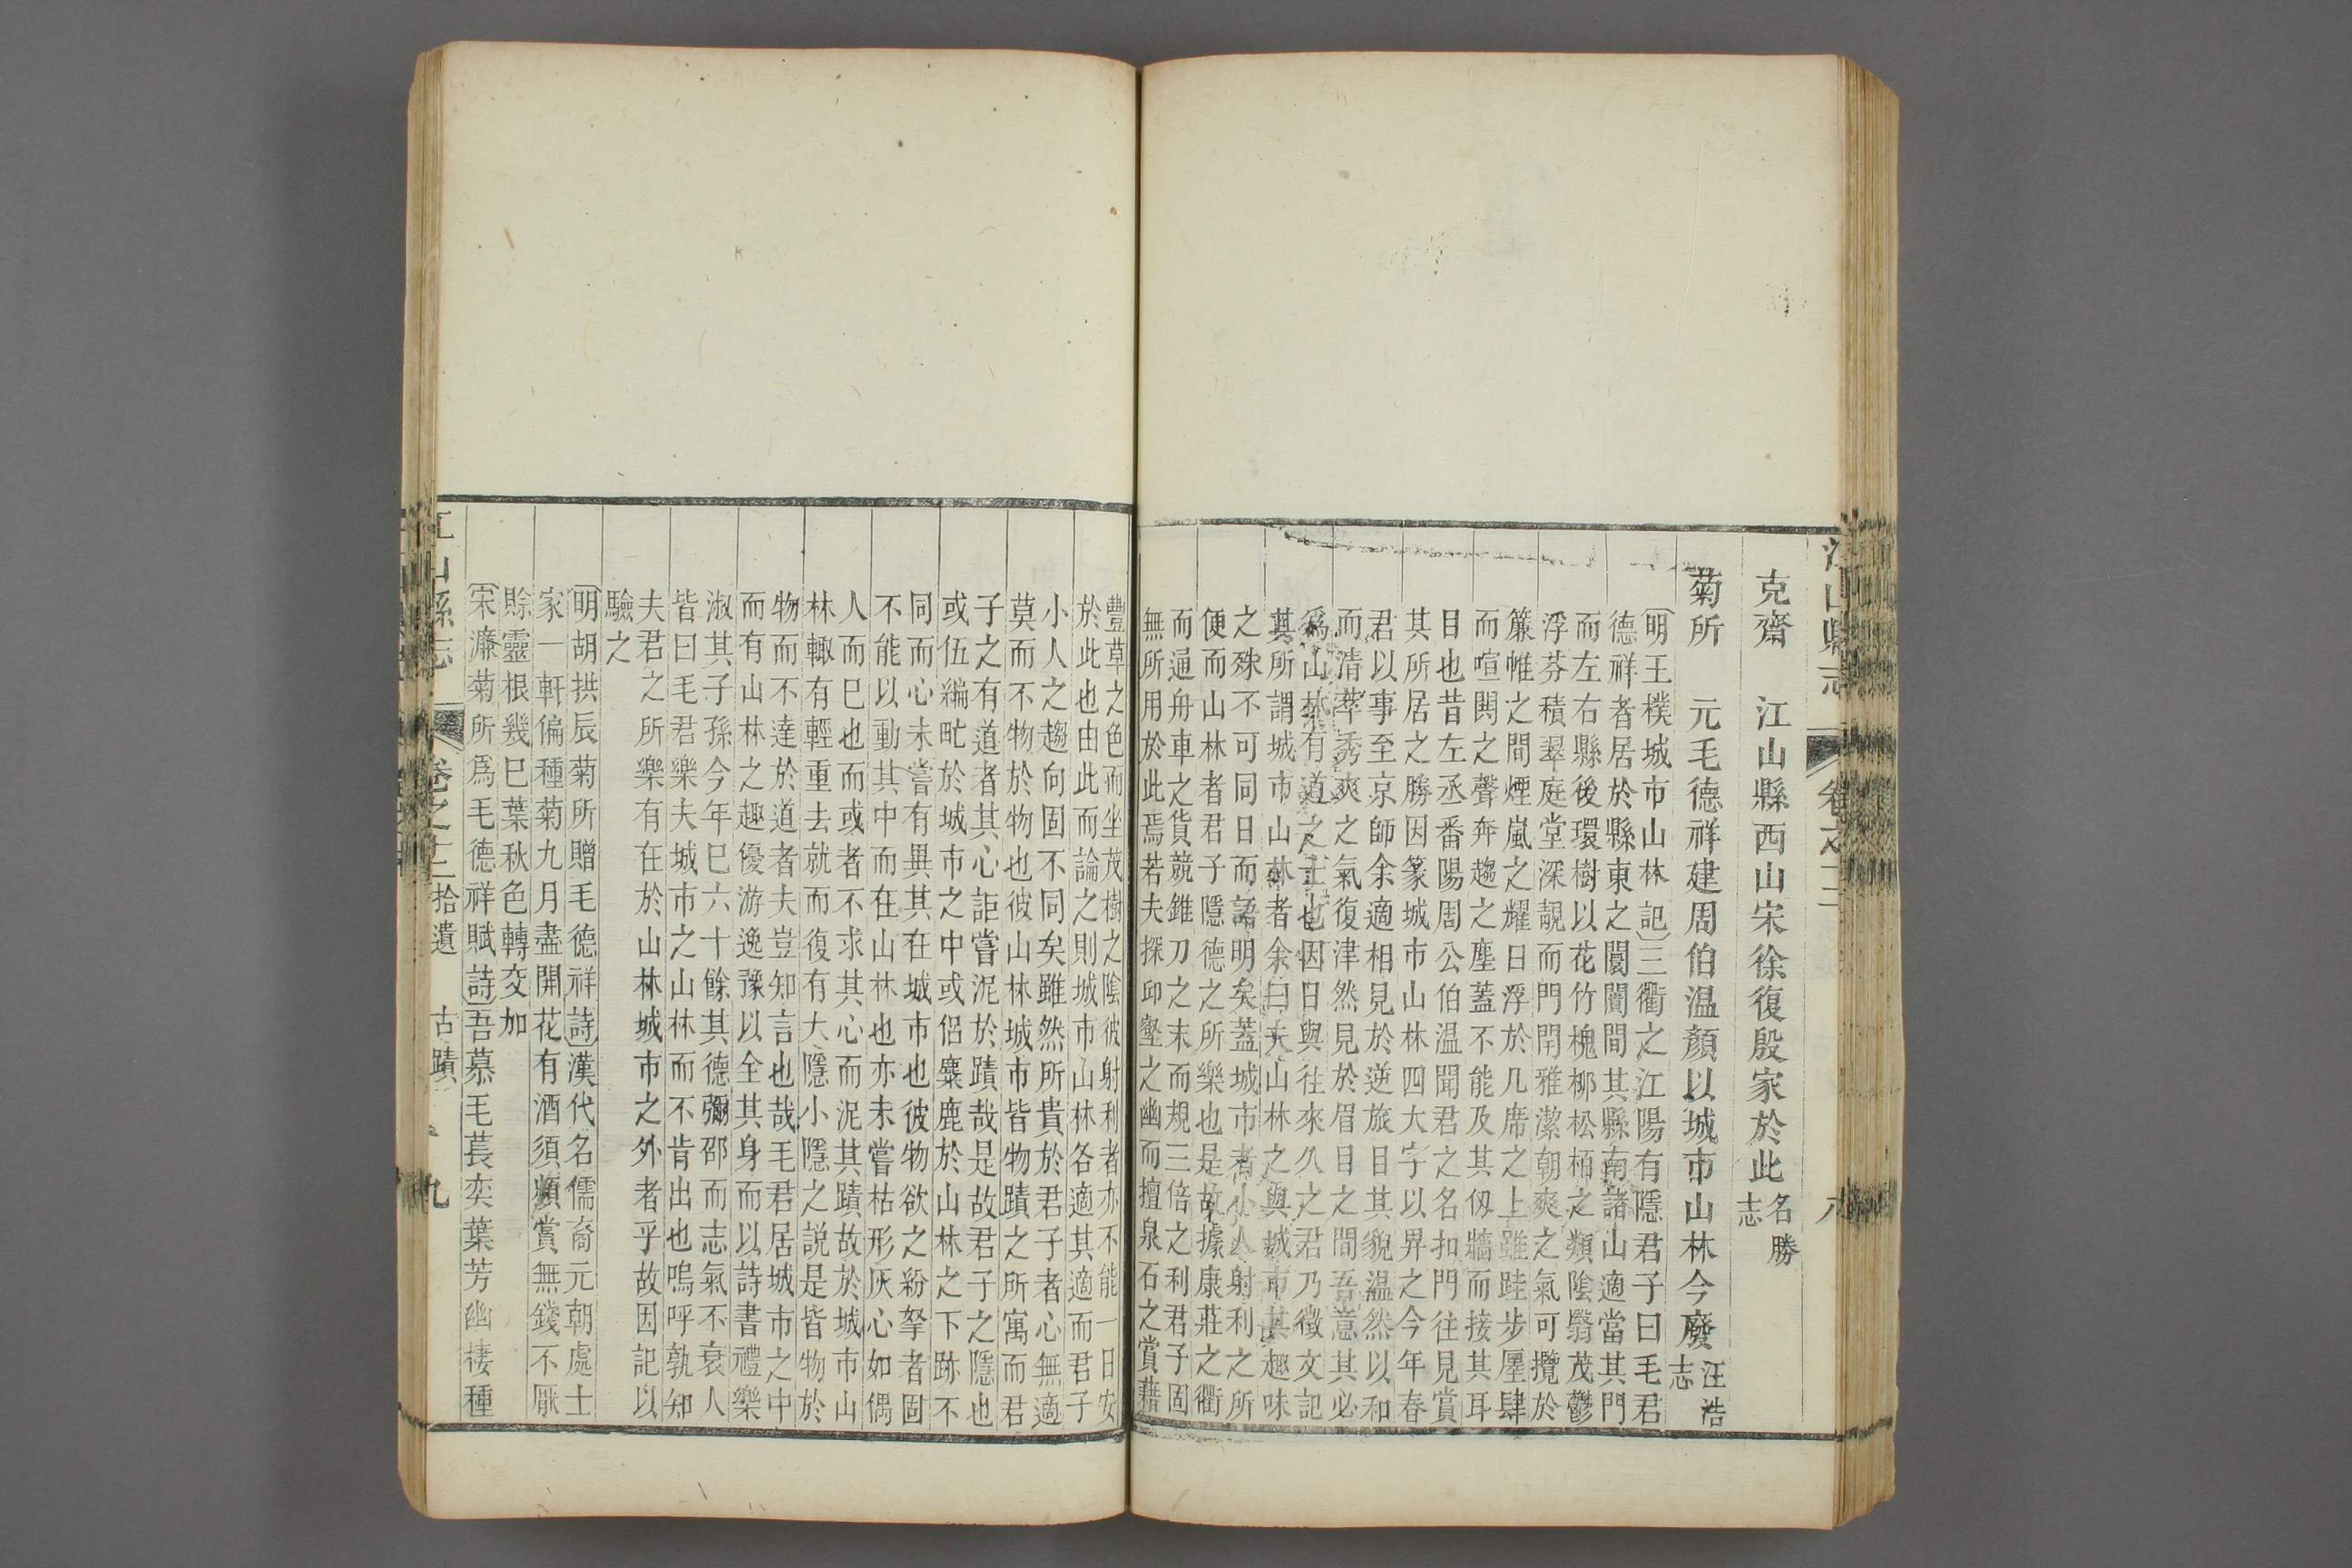 江山縣志 卷之十二 八
克齋 江山縣西山宋徐復殷家於此名勝志
菊所 元毛德祥建周伯温顏以城市山林今廢汪浩志
明王樸城市山林記三衢之江陽有隱君子曰毛君
德祥者居於縣東之闤闠間其縣南諸山適當其門
而左右縣後環樹以花竹槐柳松栢之類陰翳茂鬱
浮芬積翠庭堂深靚而門閈雅潔朝爽之氣可攬於
簾帷之間煙嵐之耀日浮於几席之上雖跬步廛肆
而喧闐之聲奔趨之塵蓋不能及其仭牆而接其耳
目也昔左丞番陽周公伯温聞君之名扣門往見賞
其所居之勝因篆城市山林四大字以畀之今年春
君以事至京師余適相見於逆旅目其貌温然以和
而清萃秀爽之氣復津然見於眉目之間吾意其必
爲山林有道之士也因日與往來久之君乃徵文記
其所謂城市山林者余曰夫山林之與城市其趣味
之殊不可同日而語明矣蓋城市者小人射利之所
便而山林者君子隱德之所樂也是故據康莊之衢
而逼舟車之貨競錐刀之末而規三倍之利君子固
無所用於此焉若夫探邱壑之幽而擅泉石之賞藉
豐草之色而坐茂樹之陰彼射利者亦不能一日安
於此也由此而論之則城市山林各適其適而君子
小人之趨向固不同矣雖然所貴於君子者心無適
莫而不物於物也彼山林城市皆物蹟之所寓而君
子之有道者其心詎嘗泥於蹟哉是故君子之隱也
或伍編甿於城市之中或侶麋鹿於山林之下跡不
同而心未嘗有異其在城市也彼物欲之紛拏者固
不能以動其中而在山林也亦未嘗枯形灰心如偶
人而巳也而或者不求其心而泥其蹟故於城市山
林輙有輕重去就而復有大隱小隱之説是皆物於
物而不達於道者夫豈知言也哉毛君居城市之中
而有山林之趣優游逸豫以全其身而以詩書禮樂
淑其子孫今年巳六十餘其德彌邵而志氣不衰人
皆曰毛君樂夫城市之山林而不肯出也嗚呼孰知
夫君之所樂有在於山林城市之外者乎故因記以
驗之
明胡拱辰菊所贈毛德祥詩漢代名儒裔元朝處士
家一軒偏種菊九月盡開花有酒須頻賞無錢不厭
賖靈根幾巳葉秋色轉交加
宋濂菊所爲毛德祥賦詩吾慕毛萇奕葉芳幽棲種
江山縣志 卷之十二 拾遺 古蹟 九